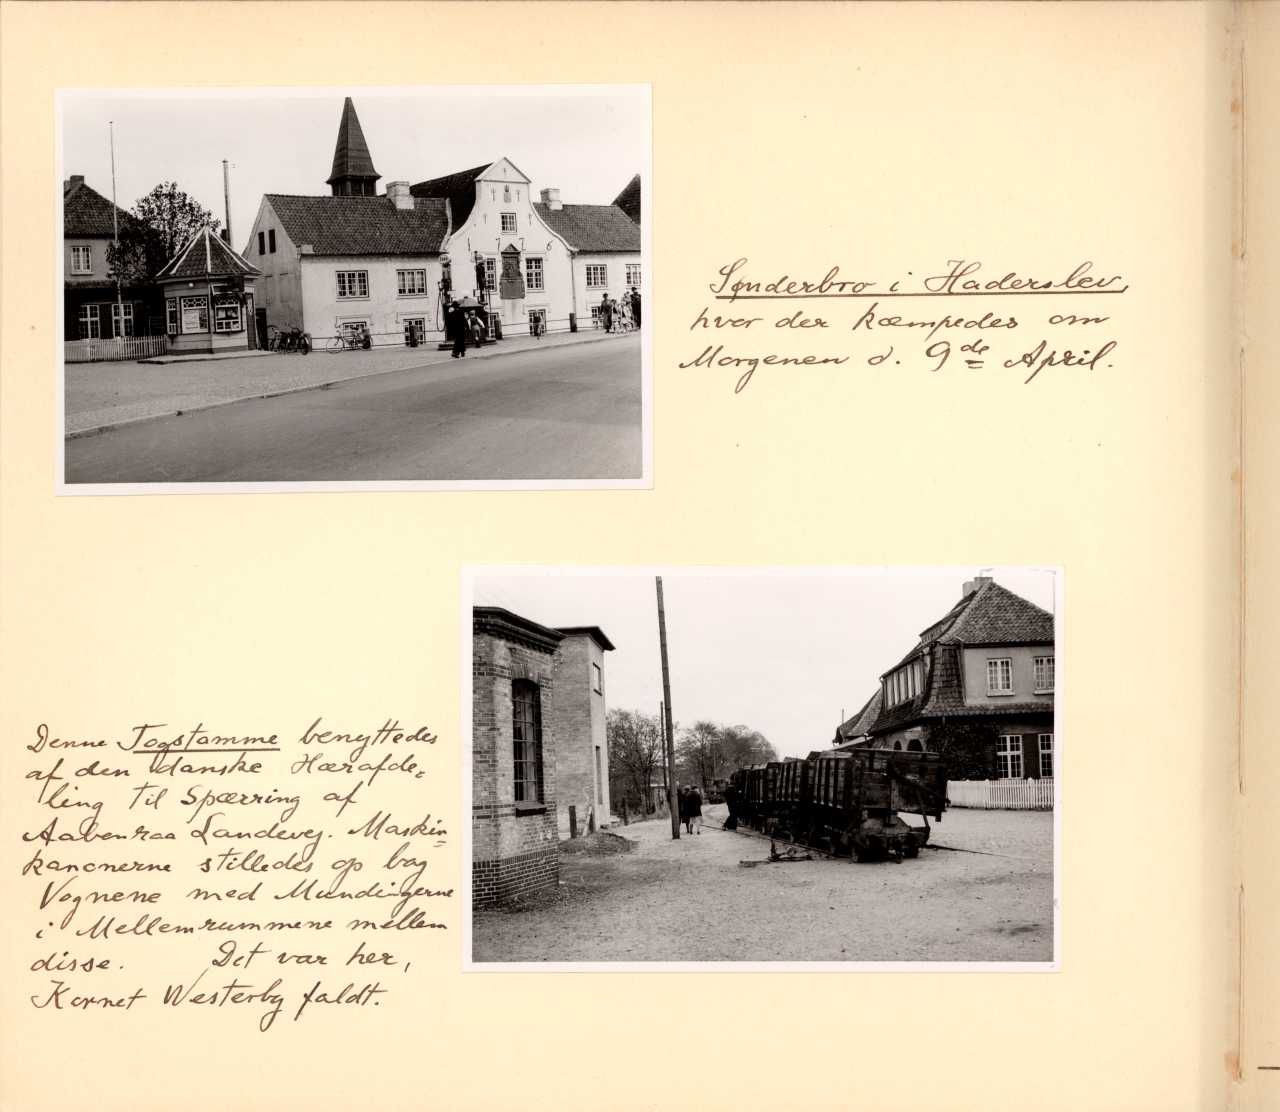 1776
Sønderbro i Haderslev,
hvor der kæmpedes om
Morgenen d. 9de April.
Denne Togstamme benyttedes
af den danske Hærafde=
ling til Spærring af
Aabenraa Landevej. Maskin=
kanonerne stilledes op bag
Vognene med Mundingerne
i Mellemrummene mellem
disse. Det var her,
Kornet Westerby faldt.